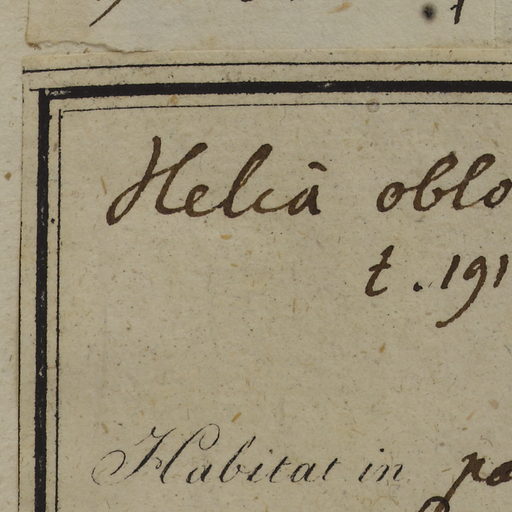 Helia oblo
t. 191
Habitat in pa